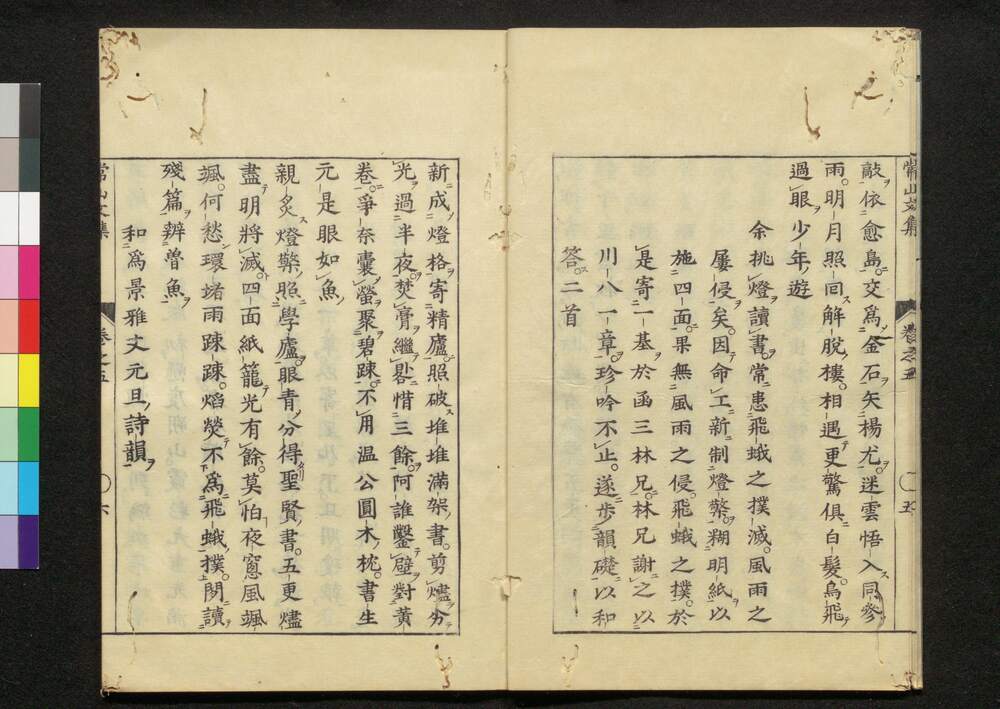 常山文集　卷之五　〇五
敲依愈島交爲金石矢楊尤迷雲悟入同參
雨明月照回解脫樓相遇更驚俱白髮烏飛
過眼少年遊
余挑燈讀書常患飛蛾之撲滅風雨之
屢侵矣因命工新制燈檠糊明紙以
施四面果無風雨之侵飛蛾之撲於
是寄一基於函三林兄林兄謝之以
川八一章珍吟不止遂步韻礎以和
答二首
新成燈格寄精廬照破堆堆滿架書剪燼夯
光過半夜焚膏繼晷惜三餘阿誰鑿壁對黃
卷爭奈囊螢聚碧疎不用溫公圓木枕書生
元是眼如魚
親炙燈檠照學廬眼青分得聖賢書五更燼
盡明將滅四面紙籠光有餘莫怕夜窻風颯
颯何愁環堵雨踈踈熖熒不爲飛蛾撲閱讀
殘篇辨魯魚
和爲景雅文元旦詩韻
常山文集　卷之五　〇六